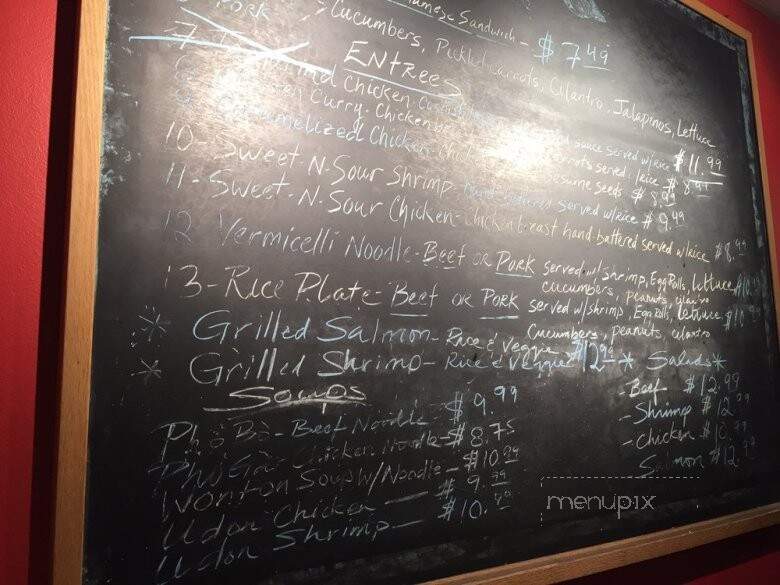 Sandwich - $7.49
Pork > Cucumbers, Pickled carrots, Cilantro, Jalapenos, lettuce
7
Entrees
8 Chicken sauce served w/rice $11.99
9 Curry - Chicken served $8.99
Caramelized Chicken sesame seeds $8.99
10 - Sweet-N-Sour Shrimp - served w/rice $9.49
11 - Sweet-N-Sour Chicken - chicken breast hand-battered served w/rice $8.49
12 Vermicelli Noodle - Beef or Pork served w/shrimp, Egg Rolls, lettuce
cucumbers, peanuts, cilantro
13 - Rice Plate Beef or Pork served w/shrimp, Egg Rolls, lettuce
cucumbers, peanuts cilantro
* Grilled Salmon - Rice & Veggie
* Grilled Shrimp - Rice & Veggie $12.99
* Salads *
- Beef $12.99
- Shrimp $12.99
- Chicken $10.99
Salmon $12.99
Soups
Phở Bò - Beef Noodle - $9.99
Phở Gà Chicken Noodle - $8.75
Wonton Soup w/Noodle - $10.99
Udon Chicken — $9.99
Udon Shrimp — $10.99
menupix